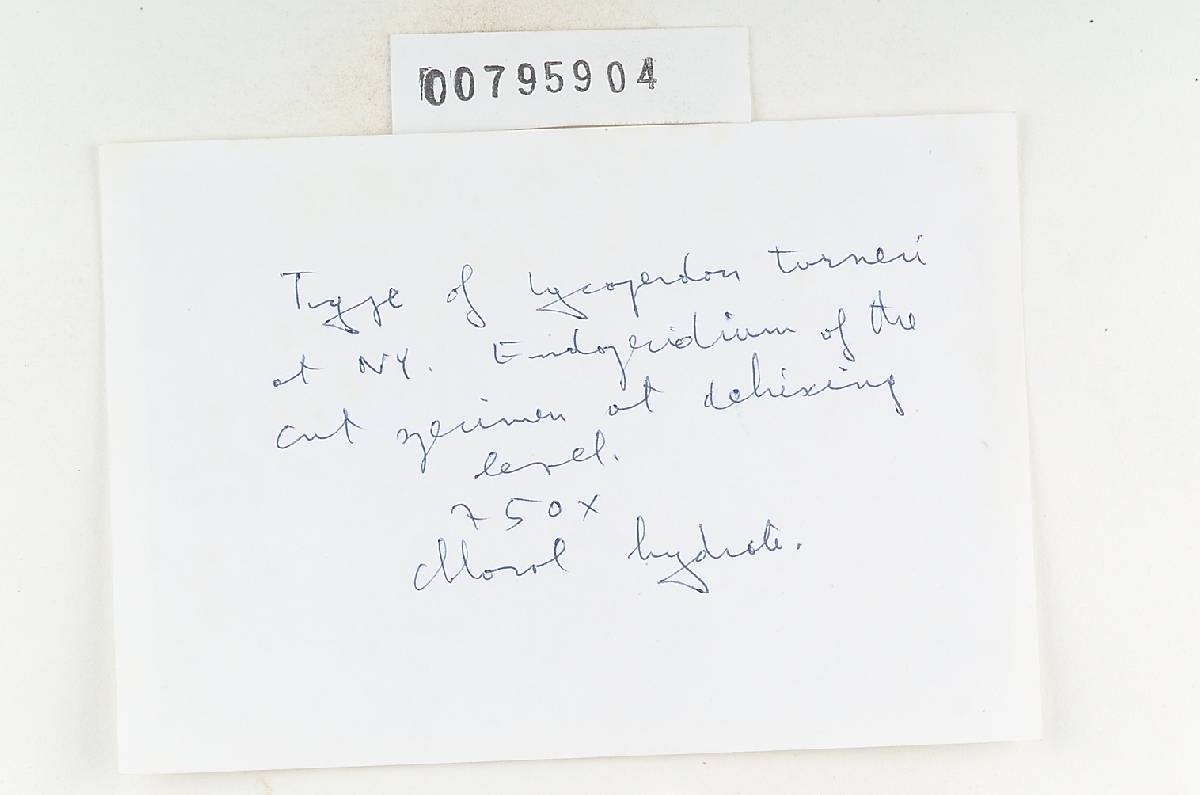 00795904
Type of Lycoperdon turneri
at NY. Endoperidium of the
cut specimen at dehixing
level.
750x
chloral hydrate.